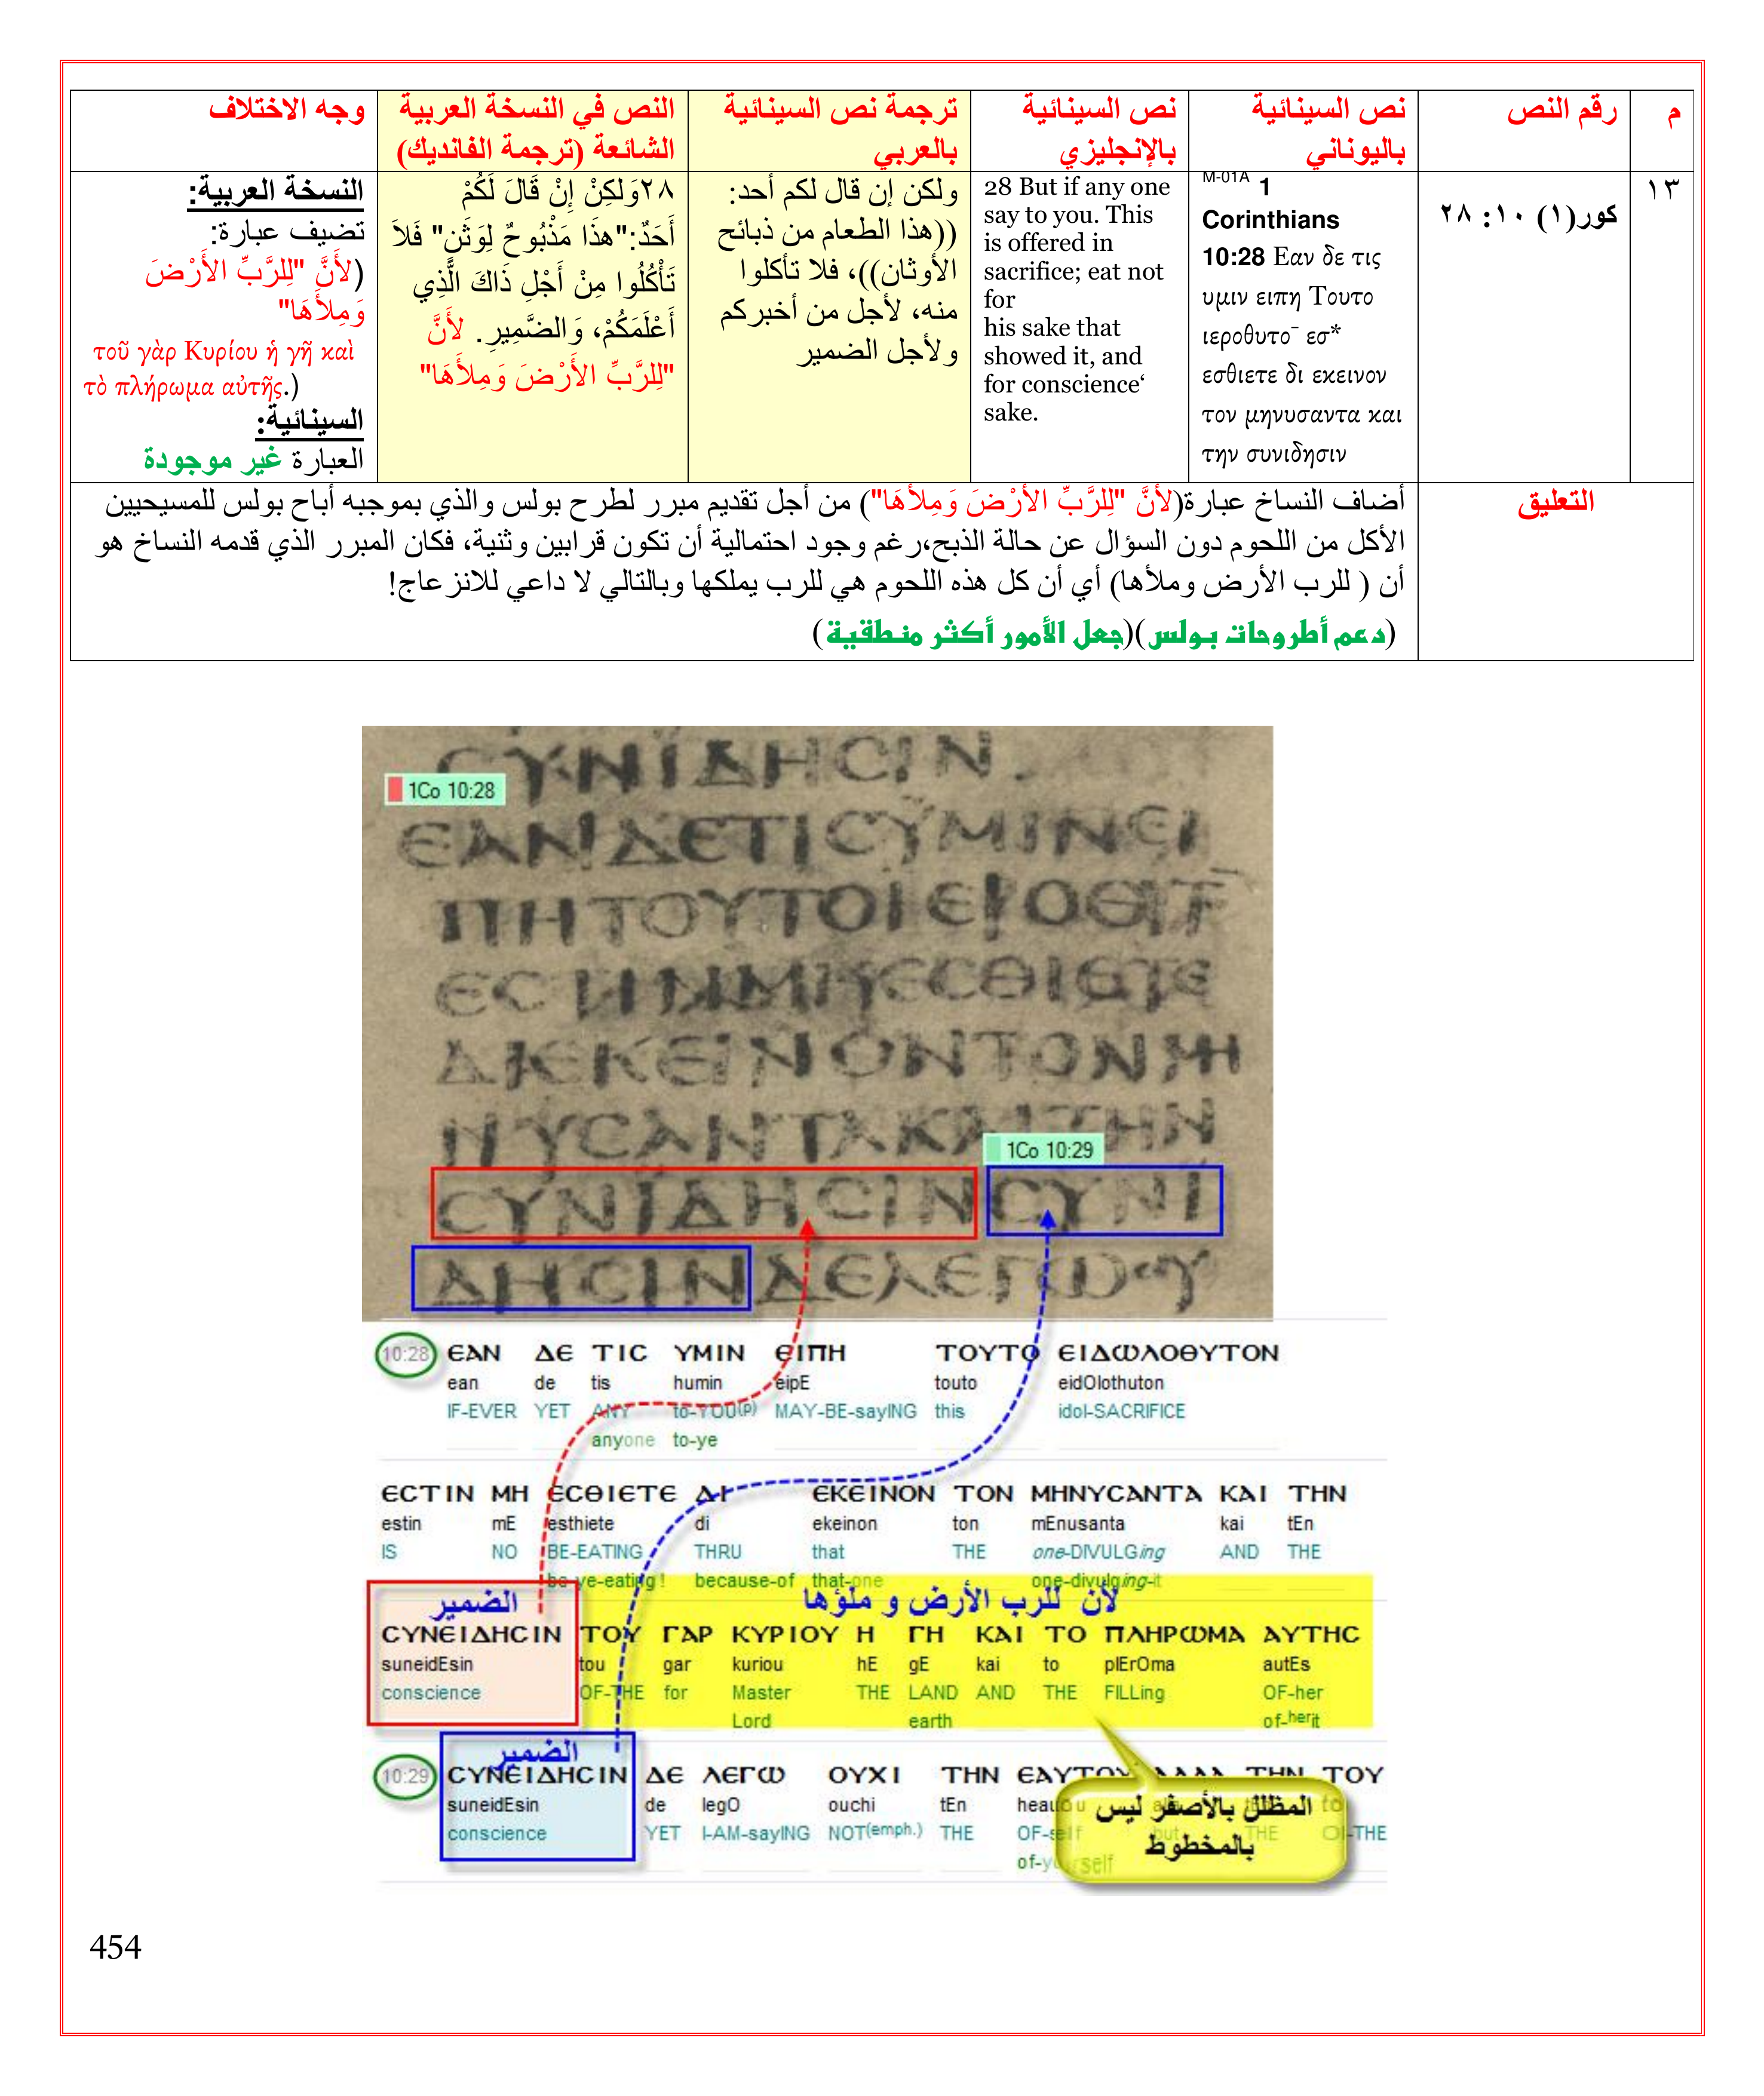 م
رقم النص
نص السينائية
باليوناني
نص السينائية
بالإنجليزي
ترجمة نص السينائية
بالعربي
النص في النسخة العربية
الشائعة (ترجمة الفانديك)
وجه الاختلاف
١٣
كور(١) ١٠: ٢٨
M-01A 1
Corinthians
10:28 Εαν δε τις
υμιν ειπη Τουτο
ιεροθυτο¯ εσ*
εσθιετε δι εκεινον
τον μηνυσαντα και
την συνιδησιν
28 But if any one
say to you. This
is offered in
sacrifice; eat not
for
his sake that
showed it, and
for conscience‘
sake.
ولكن إن قال لكم أحد:
((هذا الطعام من ذبائح
الأوثان))، فلا تأكلوا
منه، لأجل من أخبركم
ولأجل الضمير
٢٨وَلكِنْ إِنْ قَالَ لَكُمْ
أَحَدٌ:"هذَا مَذْبُوحٌ لِوَثَنٍ" فَلاَ
تَأْكُلُوا مِنْ أَجْلِ ذَاكَ الَّذِي
أَعْلَمَكُمْ، وَالضَّمِيرِ. لأَنَّ
"لِلرَّبِّ الأَرْضَ وَمِلأَهَا"
النسخة العربية:
تضيف عبارة:
(لأَنَّ "لِلرَّبِّ الأَرْضَ
وَمِلأَهَا"
τοῦ γὰρ Κυρίου ἡ γῆ καὶ
τὸ πλήρωμα αὐτῆς.)
السينائية:
العبارة غير موجودة
التعليق
أضاف النساخ عبارة(لأَنَّ "لِلرَّبِّ الأَرْضَ وَمِلأَهَا") من أجل تقديم مبرر لطرح بولس والذي بموجبه أباح بولس للمسيحيين
الأكل من اللحوم دون السؤال عن حالة الذبح،رغم وجود احتمالية أن تكون قرابين وثنية، فكان المبرر الذي قدمه النساخ هو
أن ( للرب الأرض وملأها) أي أن كل هذه اللحوم هي للرب يملكها وبالتالي لا داعي للانزعاج!
(دعم أطروحات بولس)(جعل الأمور أكثر منطقية)
ϹΥΝΙΔΗϹΙΝ
1Co 10:28
ΕΑΝΔΕΤΙϹΥΜΙΝΕΙ
ΠΗΤΟΥΤΟΙΕΡΟΘΥΤ
ΕϹΤΙΝΜΗΕϹΘΙΕΤΕ
ΔΙΕΚΕΙΝΟΝΤΟΝΜΗ
ΝΥϹΑΝΤΑΚΑΙΤΗΝ
1Co 10:29
ϹΥΝΙΔΗϹΙΝϹΥΝΙ
ΔΗϹΙΝΔΕΛΕΓΩΟΥ
10:28 ΕΑΝ ΔΕ ΤΙϹ ΥΜΙΝ ΕΙΠΗ ΤΟΥΤΟ ΕΙΔΩΛΟΘΥΤΟΝ
ean de tis humin eipE touto eidOlothuton
IF-EVER YET ANY to-YOU(p) MAY-BE-sayING this idol-SACRIFICE
anyone to-ye
ΕϹΤΙΝ ΜΗ ΕϹΘΙΕΤΕ ΔΙ ΕΚΕΙΝΟΝ ΤΟΝ ΜΗΝΥϹΑΝΤΑ ΚΑΙ ΤΗΝ
estin mE esthiete di ekeinon ton mEnusanta kai tEn
IS NO BE-EATING THRU that THE one-DIVULGing AND THE
be-ye-eating! because-of that-one one-divulging-it
الضمير
لأن للرب الأرض و ملؤها
ϹΥΝΕΙΔΗϹΙΝ ΤΟΥ ΓΑΡ ΚΥΡΙΟΥ Η ΓΗ ΚΑΙ ΤΟ ΠΛΗΡΩΜΑ ΑΥΤΗϹ
suneidEsin tou gar kuriou hE gE kai to plErOma autEs
conscience OF-THE for Master THE LAND AND THE FILLing OF-her
Lord earth of-herit
الضمير
10:29 ϹΥΝΕΙΔΗϹΙΝ ΔΕ ΛΕΓΩ ΟΥΧΙ ΤΗΝ ΕΑΥΤΟΥ ΑΛΛΑ ΤΗΝ ΤΟΥ
suneidEsin de legO ouchi tEn heautou
conscience YET I-AM-sayING NOT(emph.) THE OF-self but THE OF-THE
of-yourself
المظلل بالأصفر ليس
بالمخطوط
454